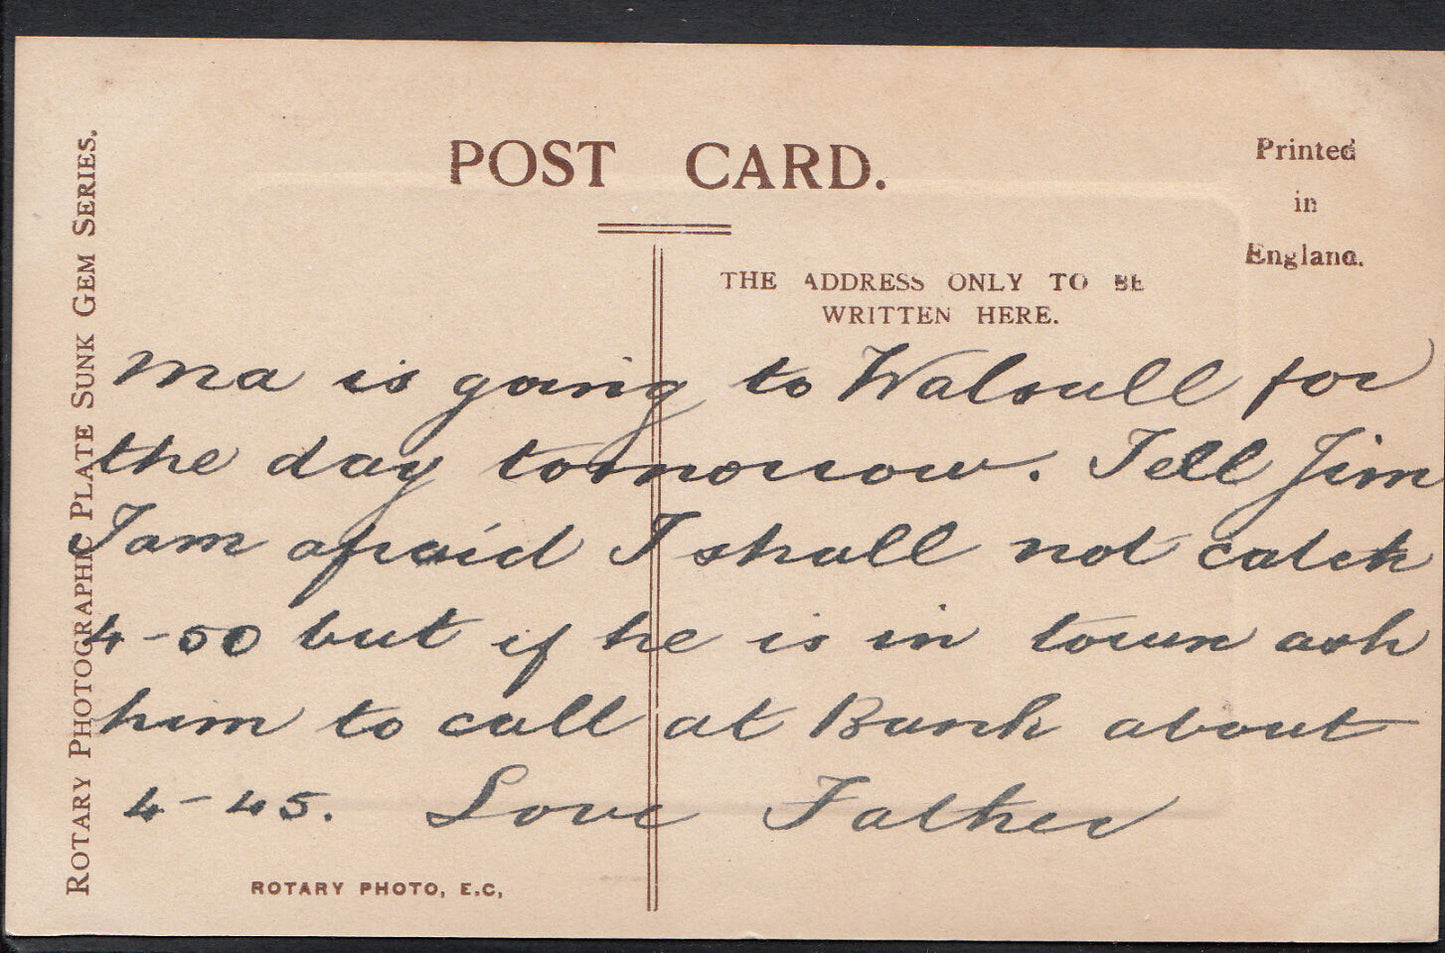 POST CARD.
Printed
in
England.
THE ADDRESS ONLY TO BE
WRITTEN HERE.
ROTARY PHOTOGRAPHIC PLATE SUNK GEM SERIES.
Ma is going to Walsall for
the day tomorrow. Tell Jim
I am afraid I shall not catch
4-50 but if he is in town ask
him to call at Bank about
4-45. Love Father
ROTARY PHOTO, E.C,